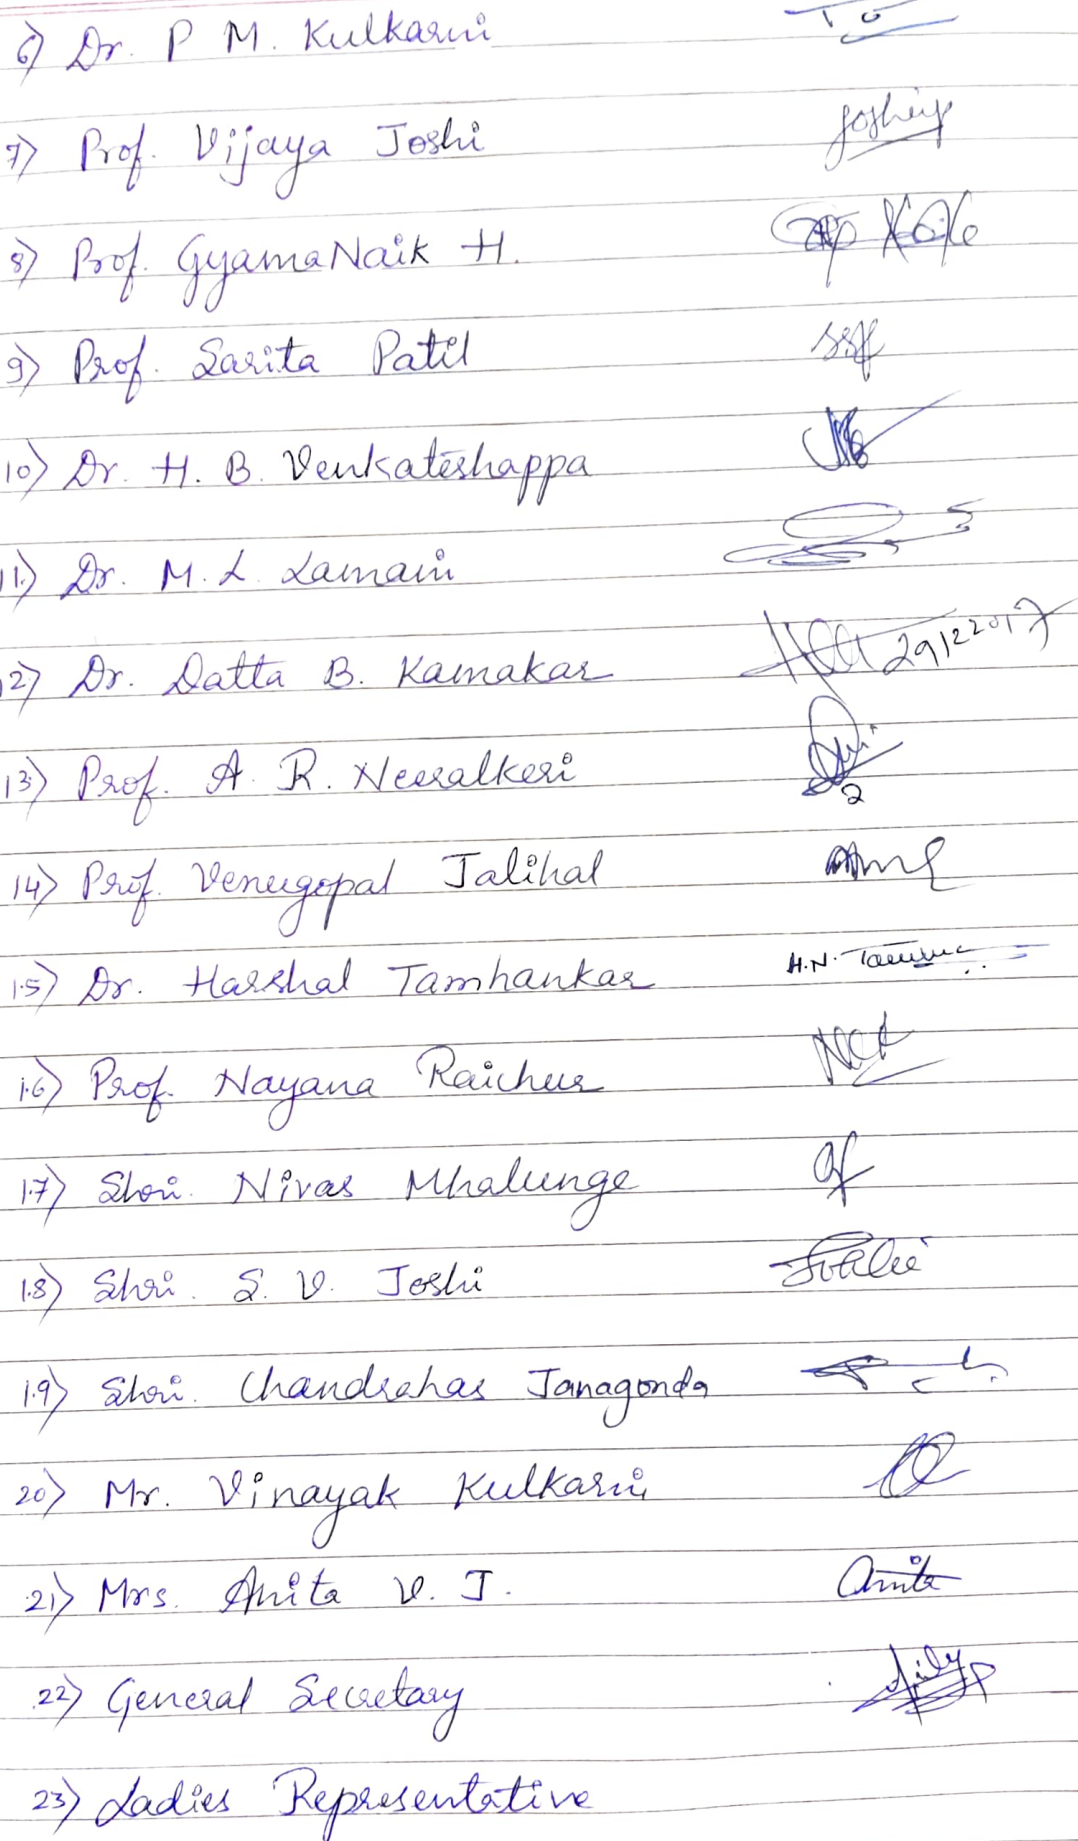 6) Dr. P M. Kulkarni
7) Prof. Vijaya Joshi
8) Prof. GyamaNaik H.
9) Prof. Sarita Patil
10) Dr. H. B. Venkateshappa
11) Dr. M. L. Lamani
12) Dr. Datta B. Kamakar 29122017
13) Prof. A. R. Neeralkeri
14) Prof. Venugopal Jalihal
15) Dr. Harshal Tamhankar H.N.
16) Prof. Nayana Raichur
17) Shri. Nivas Mhalunge
18) Shri. S. V. Joshi
19) Shri. Chandrahas Janagonda
20) Mr. Vinayak Kulkarni
21) Mrs. Anita V. J. Anita
22) General Secretary
23) Ladies Representative